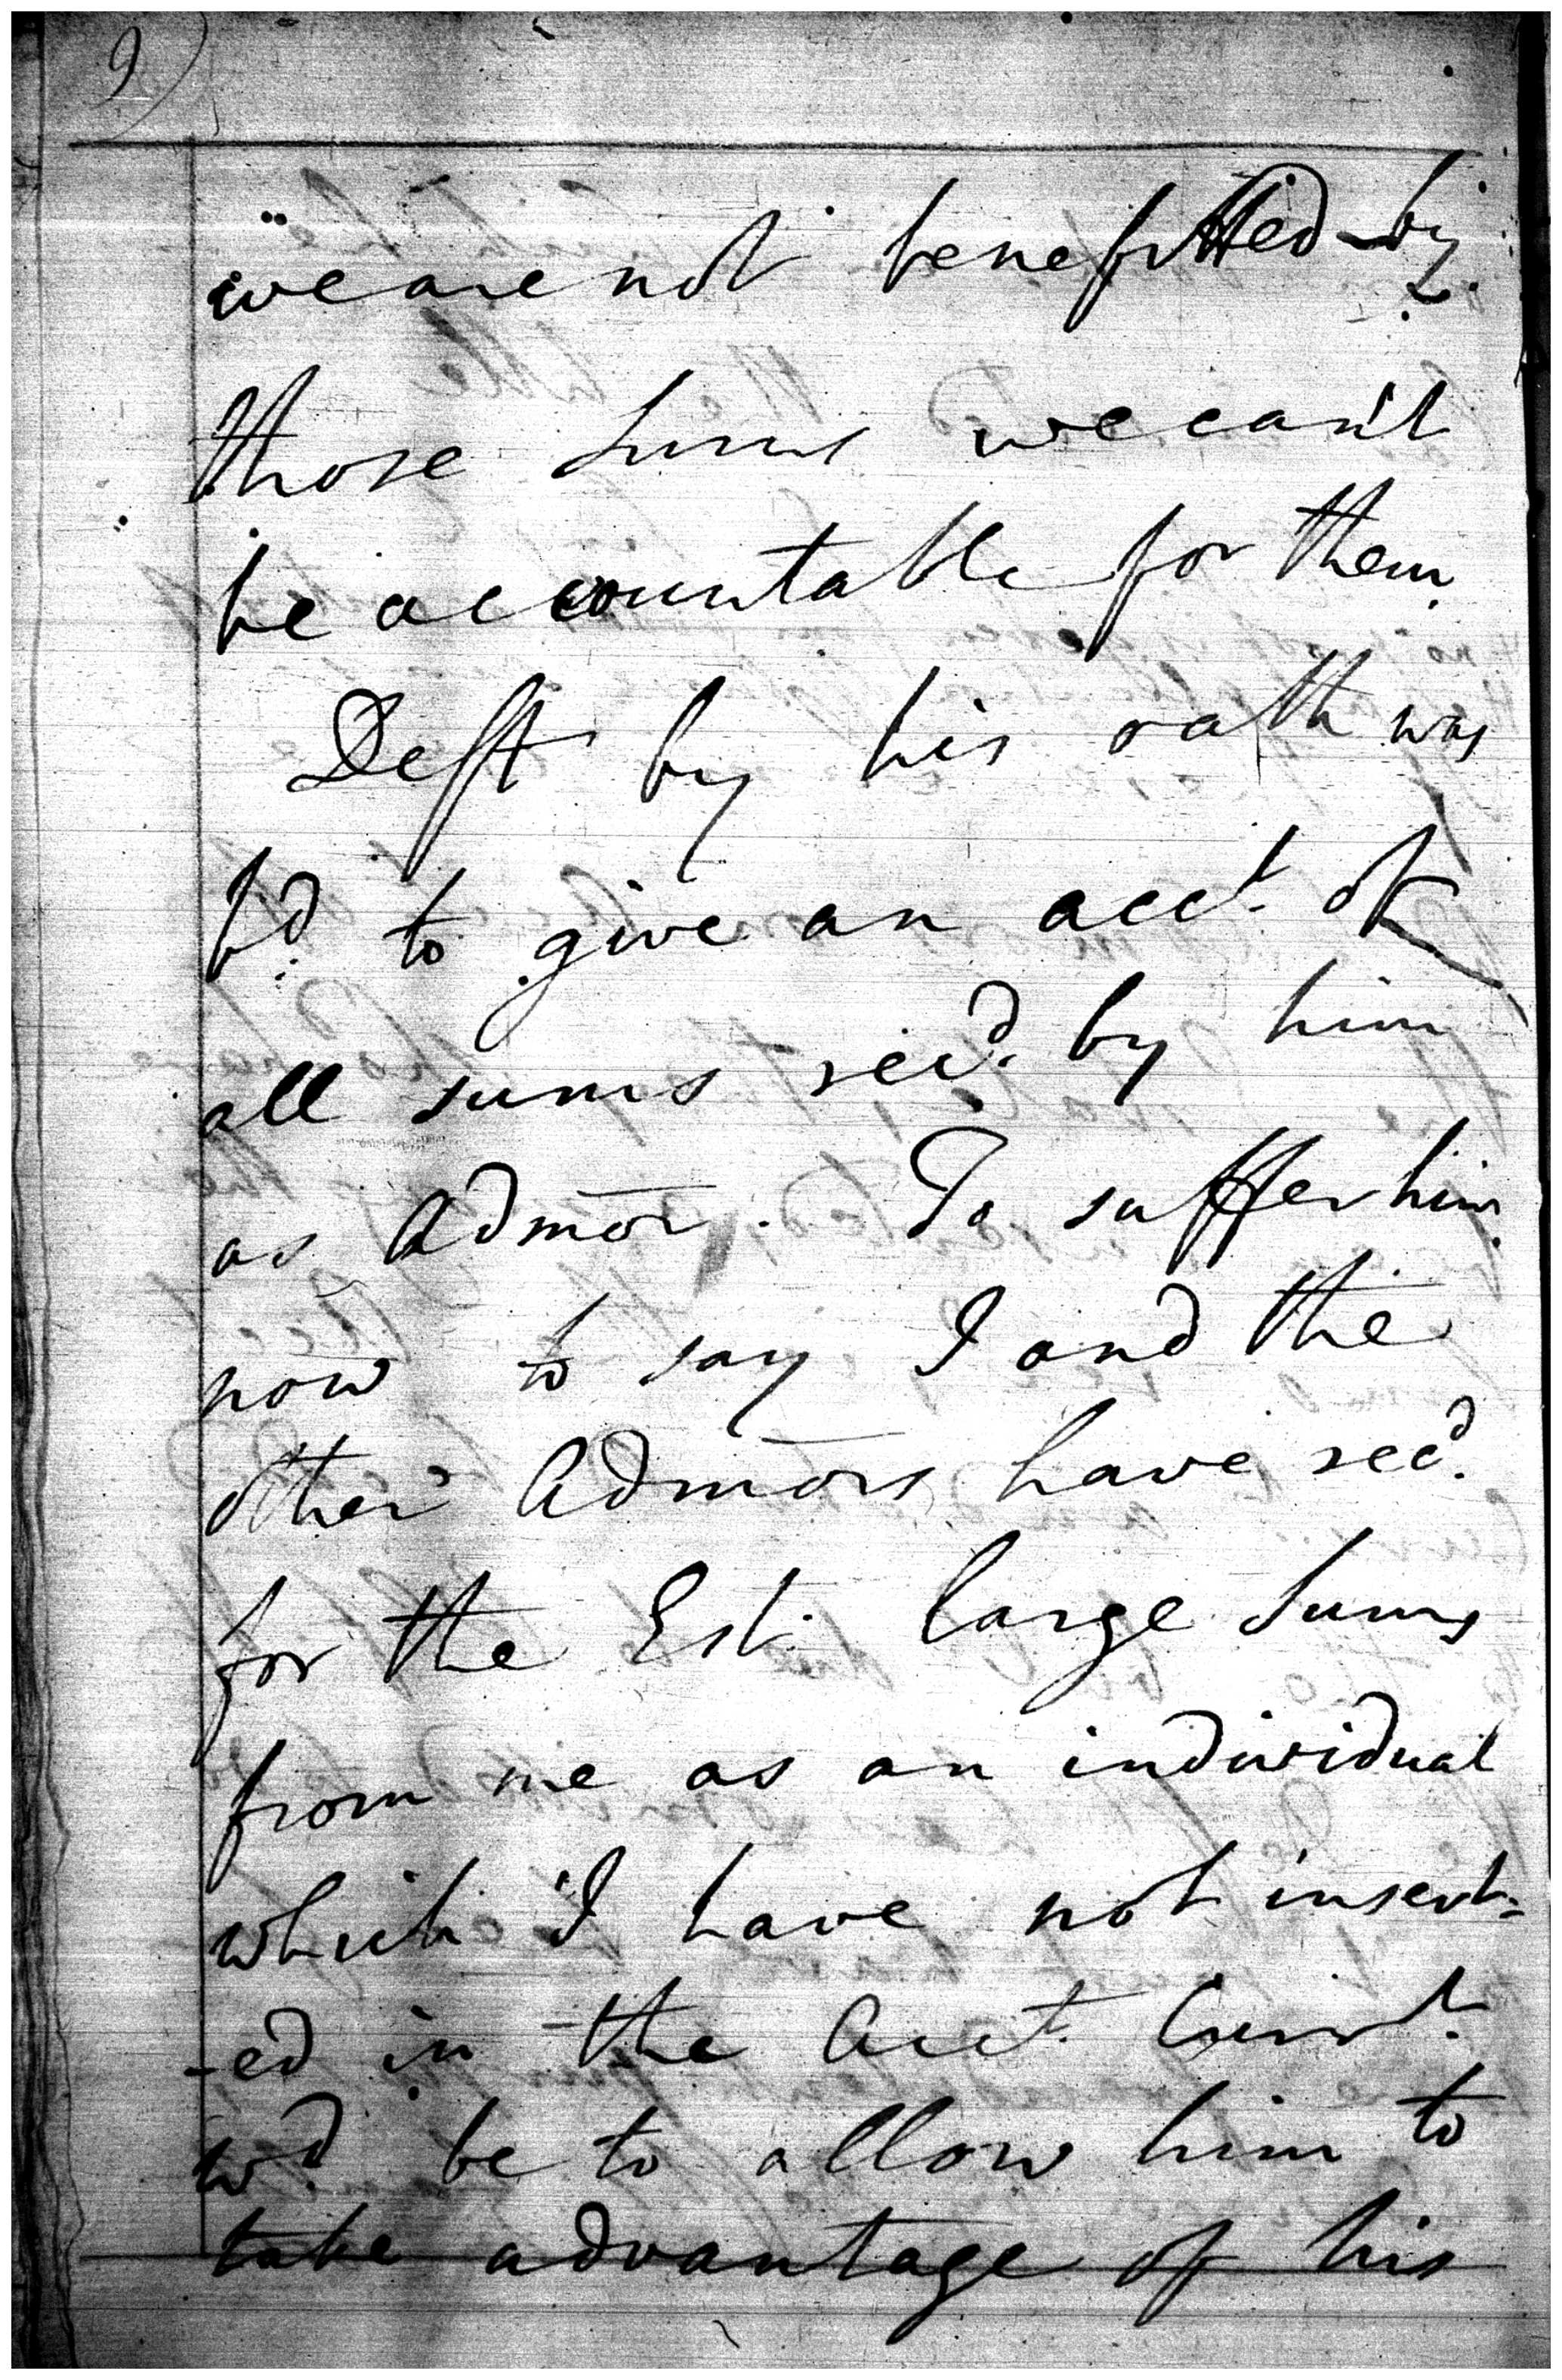 9)
we are not benefitted by
those Sums we can't
be accountable for them
Deft by his oath was
b'd to give an acct. of
all sums rec'd. by him
as Admor. To suffer him
now to say I and the
other Admors have rec'd.
for the Est. large Sums
from me as an individual
which I have not insert=
-ed in the Acct. Curnt.
w'd be to allow him to
take advantage of his